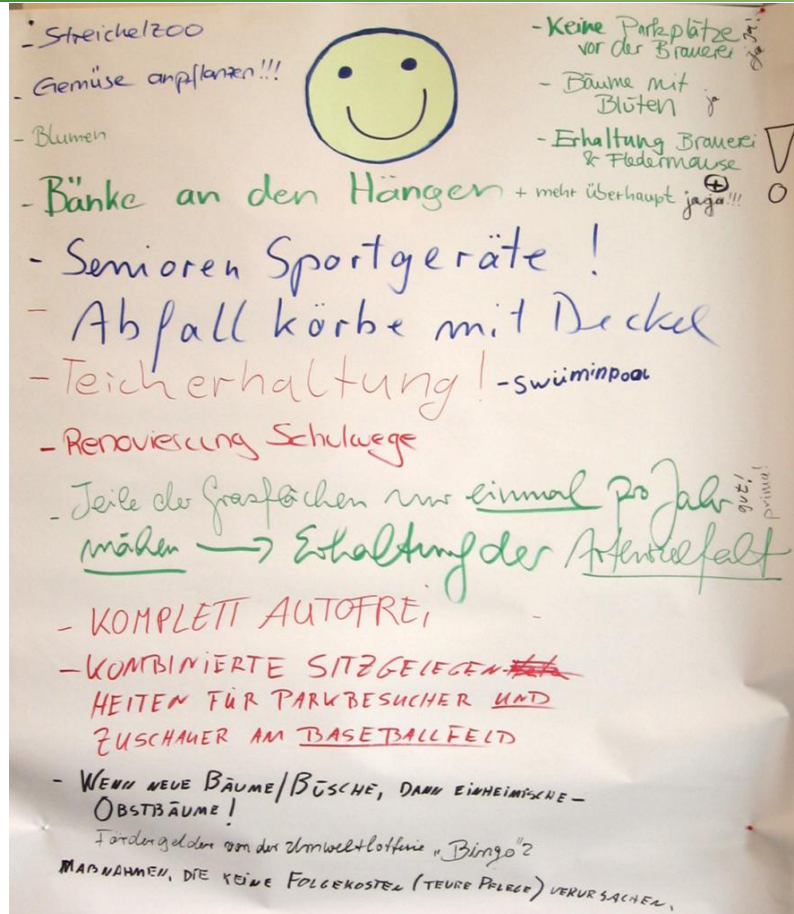 - Streichelzoo
- Gemüse anpflanzen!!!
- Blumen
- Keine Parkplätze
vor der Brauerei
Ja Ja!
- Bäume mit
Blüten ja
- Erhaltung Brauerei
& Fledermäuse
!
- Bänke an den Hängen + mehr überhaupt jaja!!!
- Senioren Sportgeräte !
- Abfallkörbe mit Deckel
- Teicherhaltung! - swüminpool
- Renovierung Schulwege
- Teile der Grasflächen nur einmal pro Jahr
gut!
prima!
mähen → Erhaltung der Artenvielfalt
- KOMPLETT AUTOFREI
- KOMBINIERTE SITZGELEGEN-
HEITEN FÜR PARKBESUCHER UND
ZUSCHAUER AM BASEBALLFELD
- WENN NEUE BÄUME/BÜSCHE, DANN EINHEIMISCHE -
OBSTBÄUME!
Fördergelder von der Umweltlotterie „Bingo"?
MAßNAHMEN, DIE KEINE FOLGEKOSTEN (TEURE PFLEGE) VERURSACHEN.